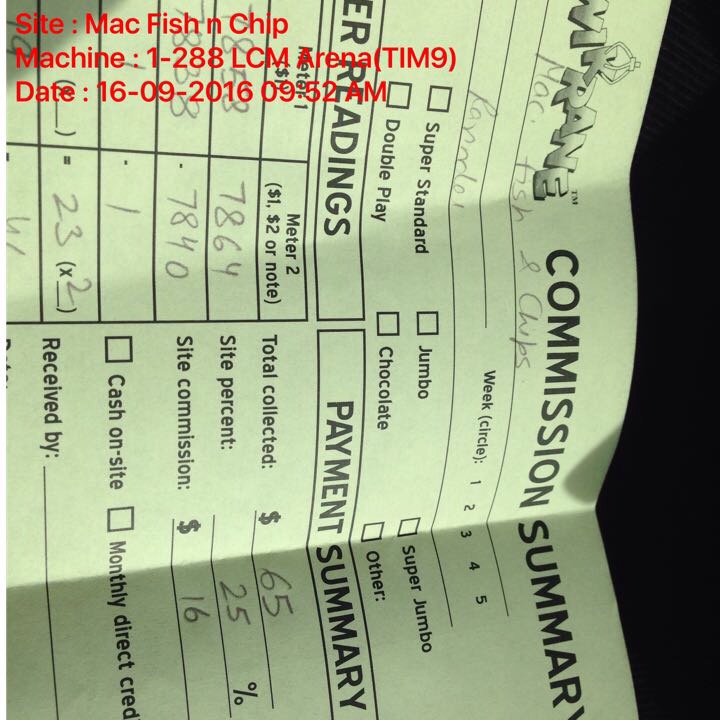 Site : Mac Fish n Chip
Machine : 1-288 LCM Arena(TIM9)
Date : 16-09-2016 09:52 AM
COMMISSION SUMMARY
Mac. Fish & Chips
Week (circle): 1 2 3 4 5
Super Standard
Jumbo
Super Jumbo
Double Play
Chocolate
Other:
ER READINGS
PAYMENT SUMMARY
Meter 2
($1, $2 or note)
7864
- 7840
- 1
= 23 (x 2)
Total collected: $ 65
Site percent: 25 %
Site commission: $ 16
Cash on-site
Monthly direct cred
Received by: